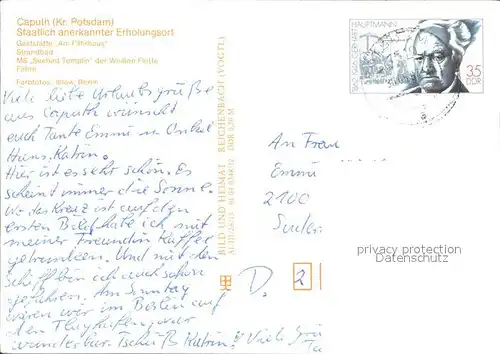 Caputh (Kr. Potsdam)
Staatlich anerkannter Erholungsort
Gaststätte „Am Fährhaus"
Strandbad
MS „Seebad Templin" der Weißen Flotte
Fähre
Farbfotos: Berlin
Viele liebe Urlaubsgrüße
aus Caputh wünscht
euch Tante Emmi u. Onkel
Hans, Katrin.
Hier ist es sehr schön. Es
scheint immer die Sonne.
Wo das Kreuz ist auf den
ersten Bild habe ich mit
meiner Freundin Kaffee
getrunken. Und mit den
Schiff bin ich auch schon
gefahren. Am Sonntag
waren wir in Berlin auf
den
wunderbar. Tschüß Katrin.
BILD UND HEIMAT REICHENBACH (VOGTL)
DDR 0,20 M
GERHART HAUPTMANN
35
DDR
An Frau
Emmi
2100
privacy protection
Datenschutz
D.
2
Viele